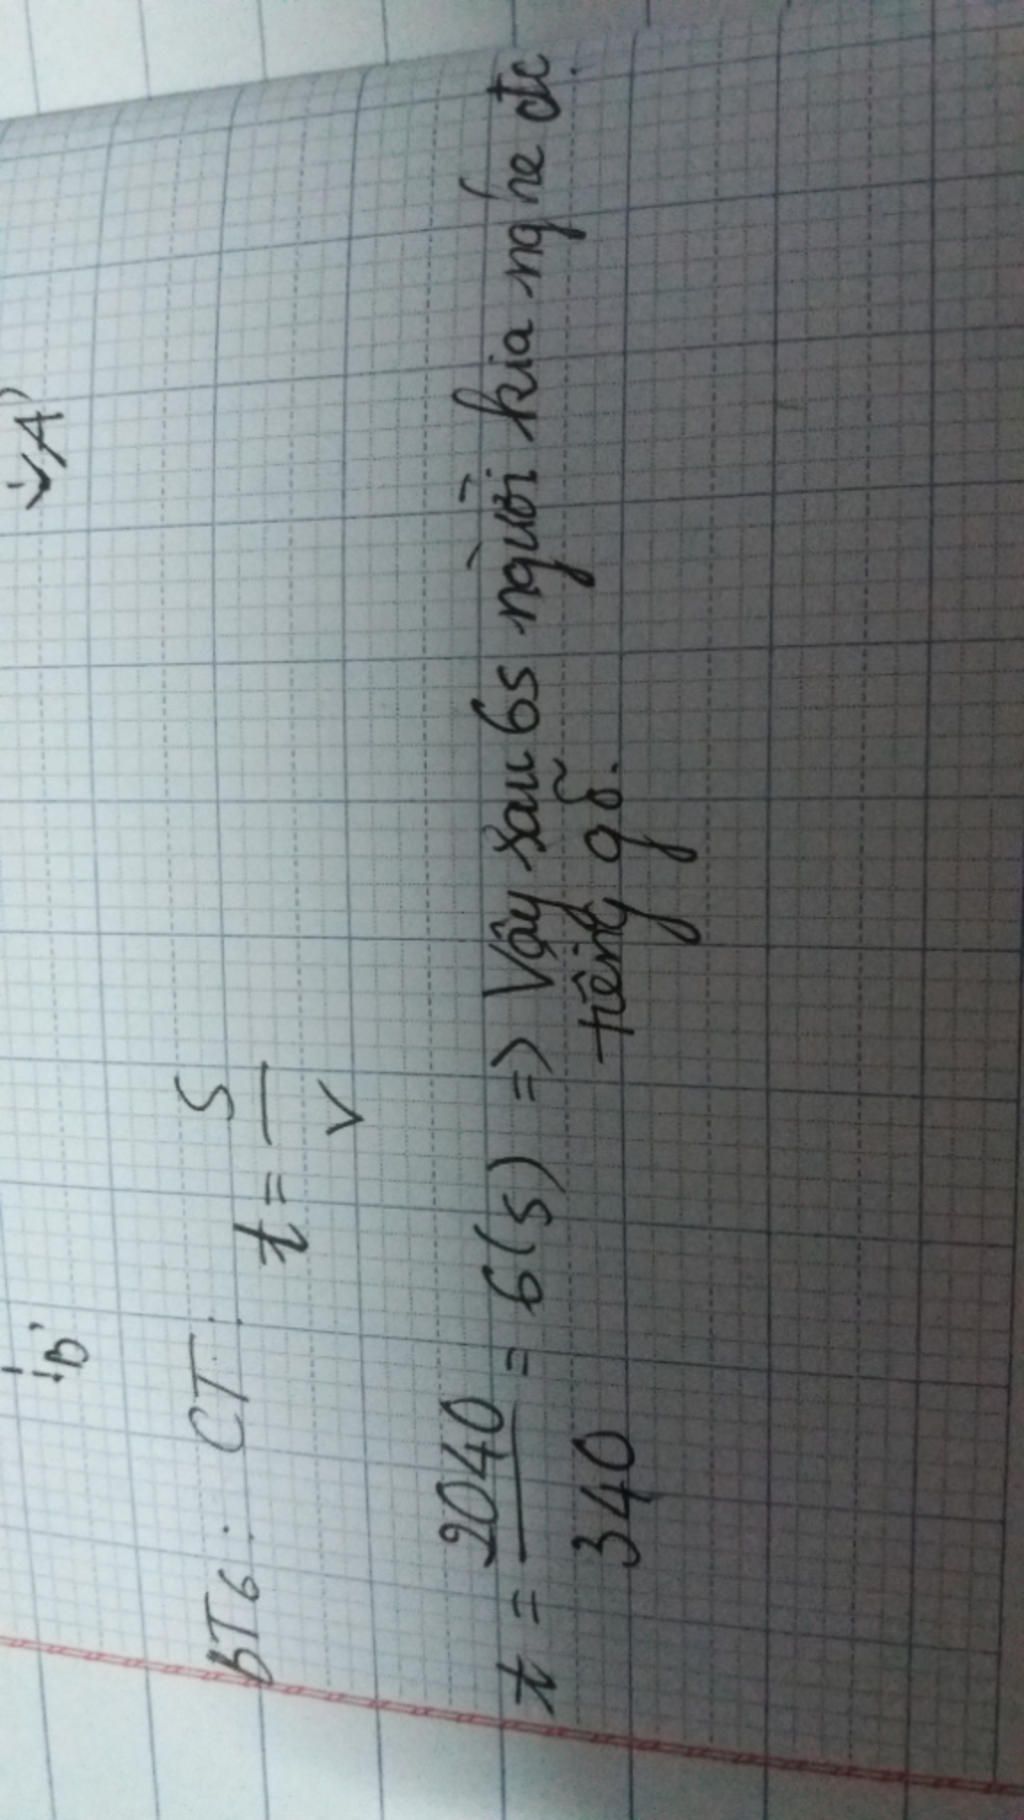 B' A'
BT6: CT: t = S/V
t = 2040/340 = 6(s) => Vậy sau 6s người kia nghe đc
tiếng gõ.